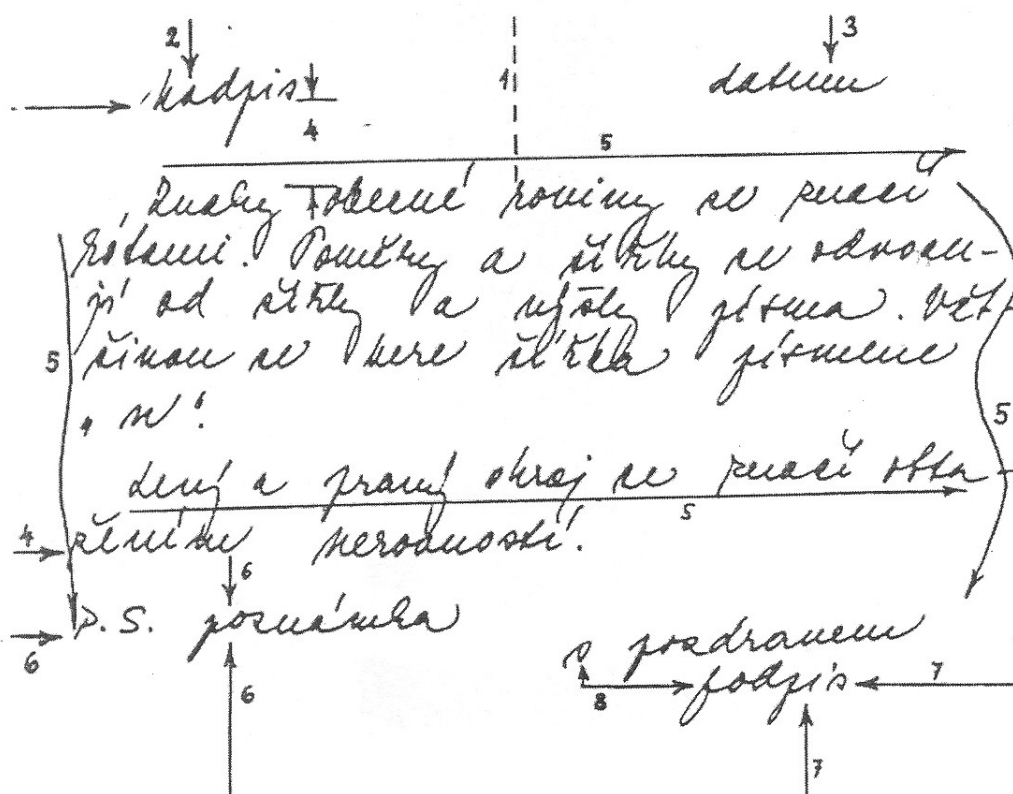 2 1 3
nadpis datum
4
5
Znaky obecné roviny se značí
kótami. Poměry a šířky se odvozu-
jí od šířky a výšky písma. Vět-
5 šinou se bere šířka písmene
„n“. 5
Levý a pravý okraj se značí obta-
5
4 žením nerovností.
6
P.S. poznámka
6 s pozdravem
6 8 podpis 7
7